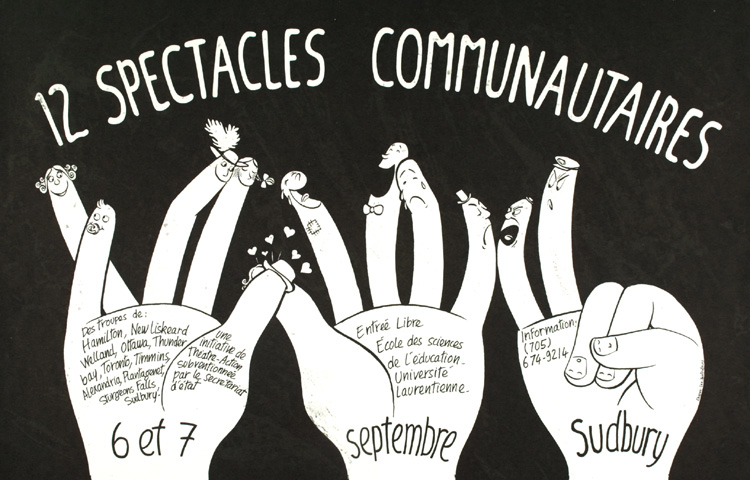 12 SPECTACLES COMMUNAUTAIRES
Des troupes de:
Hamilton, New Liskeard
Welland, Ottawa, Thunder
bay, Toronto, Timmins
Alexandria, Plantagenet,
Sturgeons Falls,
Sudbury.
Une
initiative de
Theatre-Action
subventionnée
par le secretariat
d'état
Entreé Libre
École des sciences
de l'éducation.
Université
Laurentienne.
Information:
(705)
674-9214
6 et 7
septembre
Sudbury